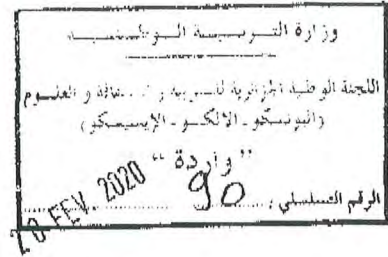 وزارة التربية الوطنية
اللجنة الوطنية الجزائرية للتربية و الثقافة و العلوم
(اليونسكو - الالكسو - الإيسيسكو)
" واردة "
20 FEV. 2020
الرقم التسلسلي : 90